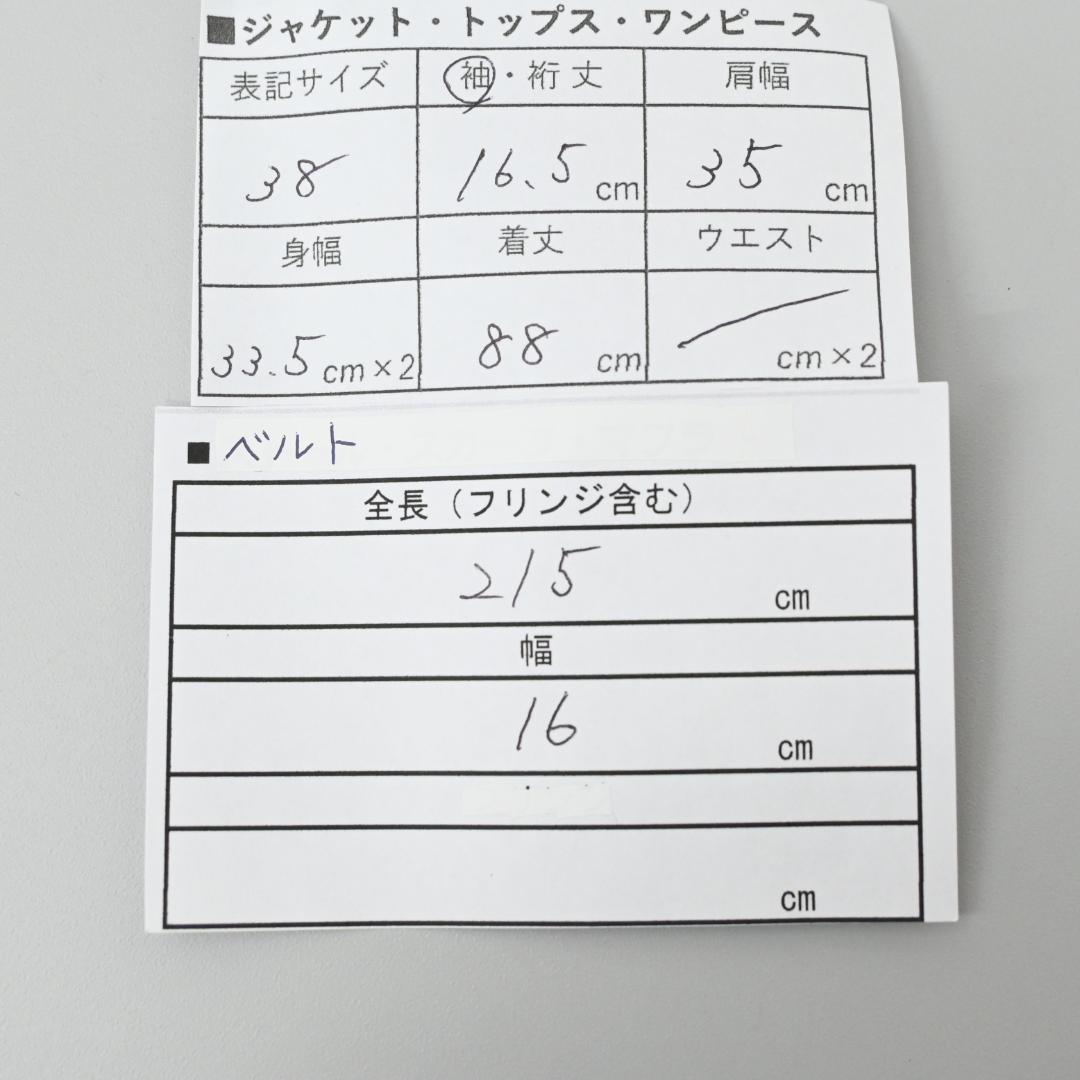 ■ジャケット・トップス・ワンピース
表記サイズ 袖・裄丈 肩幅
38 16.5 cm 35 cm
身幅 着丈 ウエスト
33.5 cm×2 88 cm cm×2
■ベルト
全長（フリンジ含む）
215 cm
幅
16 cm
cm